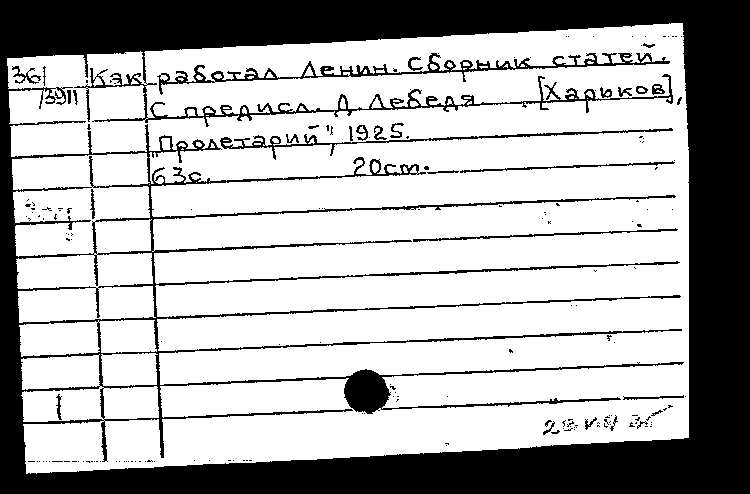 36/ Как работал Ленин. Сборник статей.
/3911 С предисл. Д. Лебедя. [Харьков],
„Пролетарий", 1925.
63с. 20ст.